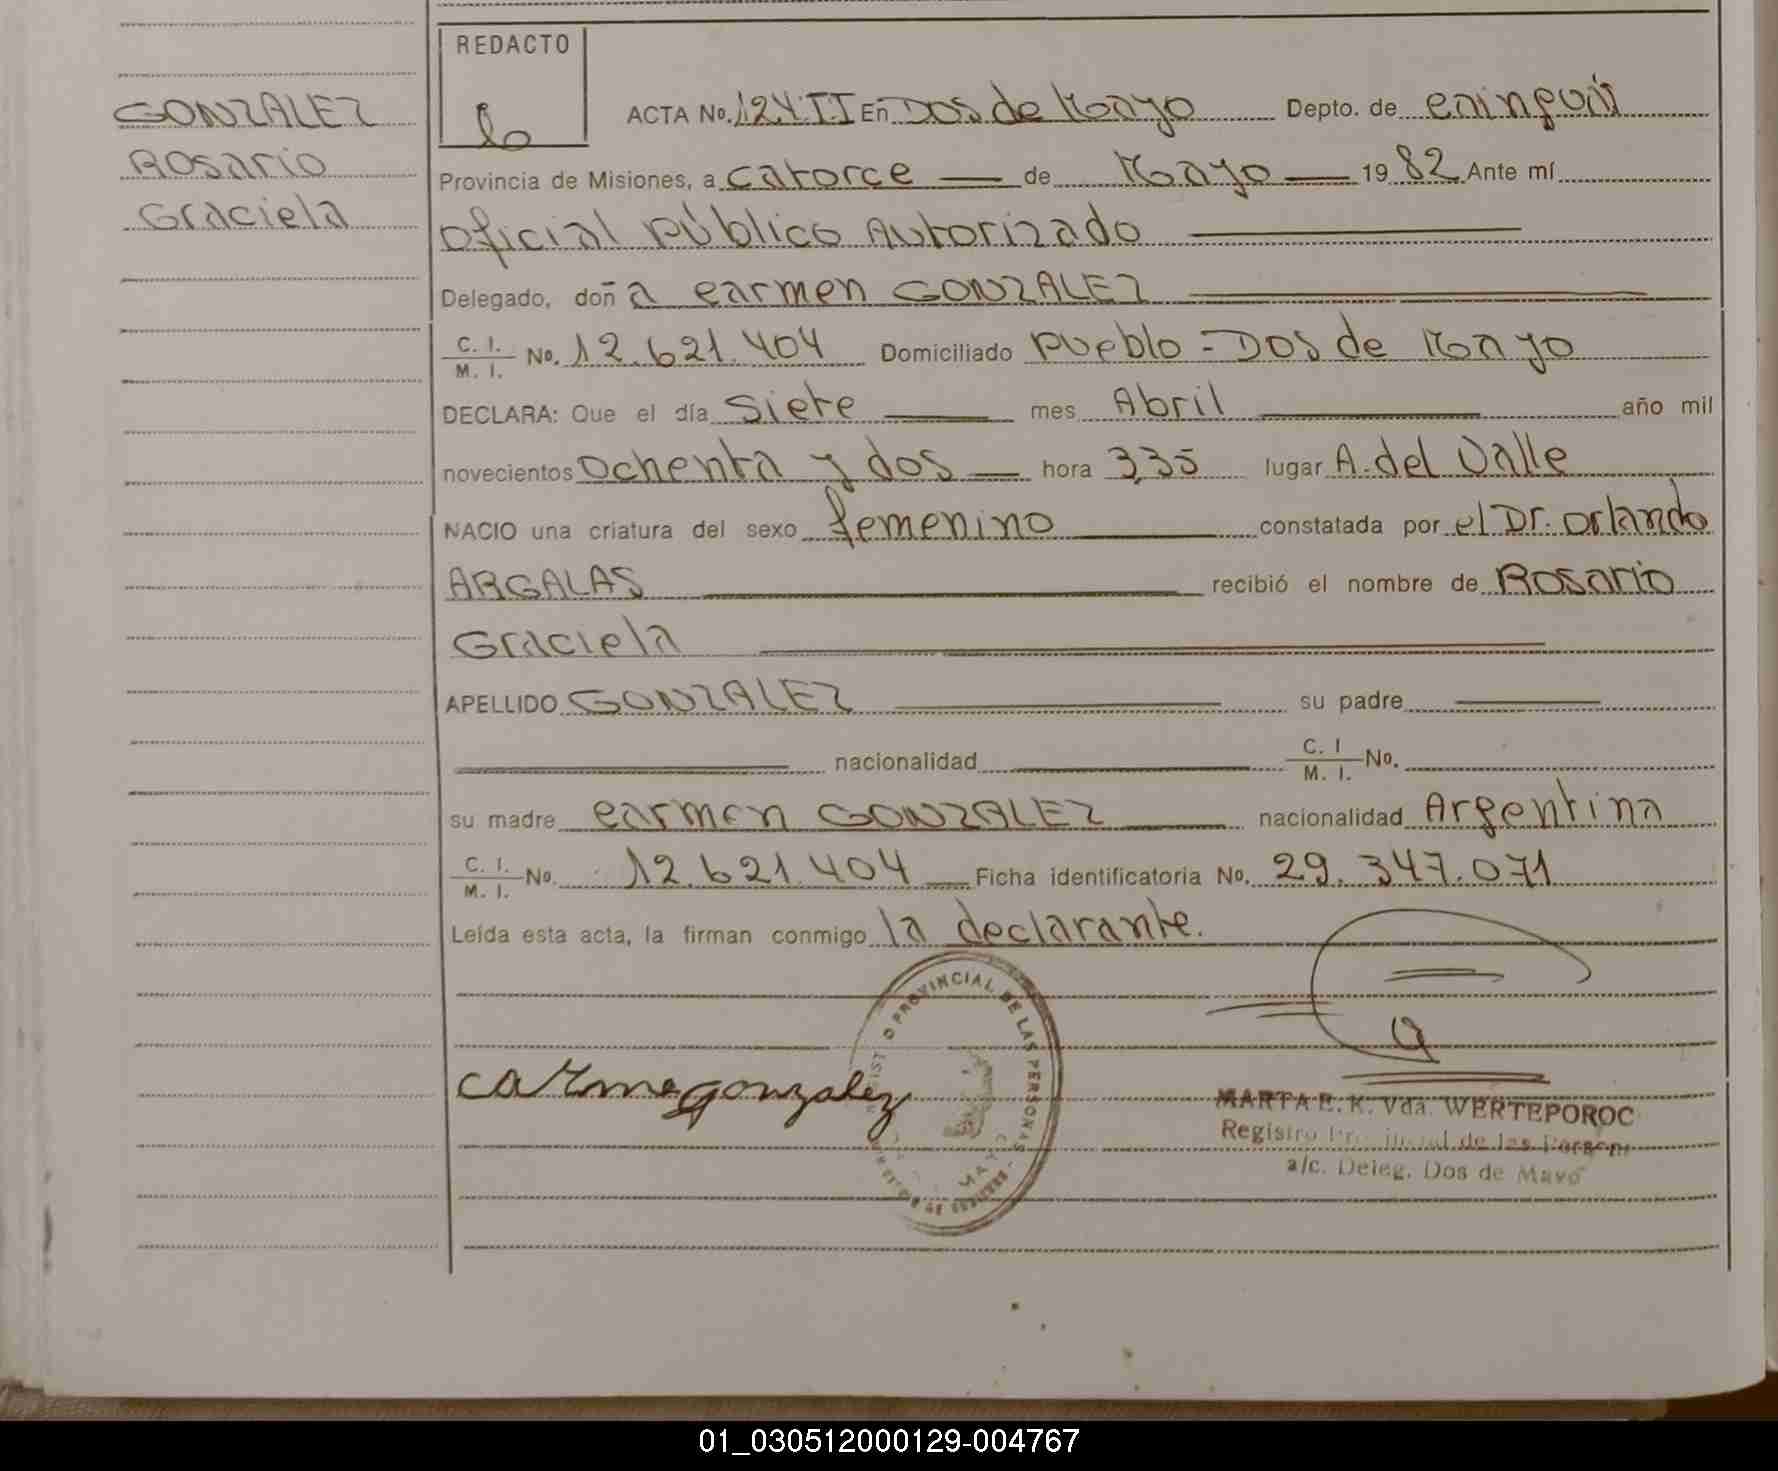 GONZALEZ
Rosario
Graciela
REDACTO
ACTA No. 124 II En Dos de Mayo Depto. de Cainguás
Provincia de Misiones, a catorce de Mayo 1982 Ante mí
Oficial Público Autorizado
Delegado, doña Carmen GONZALEZ
C. I. / M. I. No. 12.621.404 Domiciliado Pueblo - Dos de Mayo
DECLARA: Que el día Siete mes Abril año mil
novecientos Ochenta y dos hora 3,35 lugar A. del Valle
NACIO una criatura del sexo femenino constatada por el Dr. Orlando
ARGALAS recibió el nombre de Rosario
Graciela
APELLIDO GONZALEZ su padre
nacionalidad C. I / M. I. No.
su madre Carmen GONZALEZ nacionalidad Argentina
C. I. / M. I. No. 12.621.404 Ficha identificatoria No. 29.347.071
Leída esta acta, la firman conmigo la declarante.
PROVINCIAL DE LAS PERSONAS
carmegonzalez
MARTA E. K. Vda. WERTEPOROC
Registro Provincial de las Person
a/c. Deleg. Dos de Mayo
01_030512000129-004767